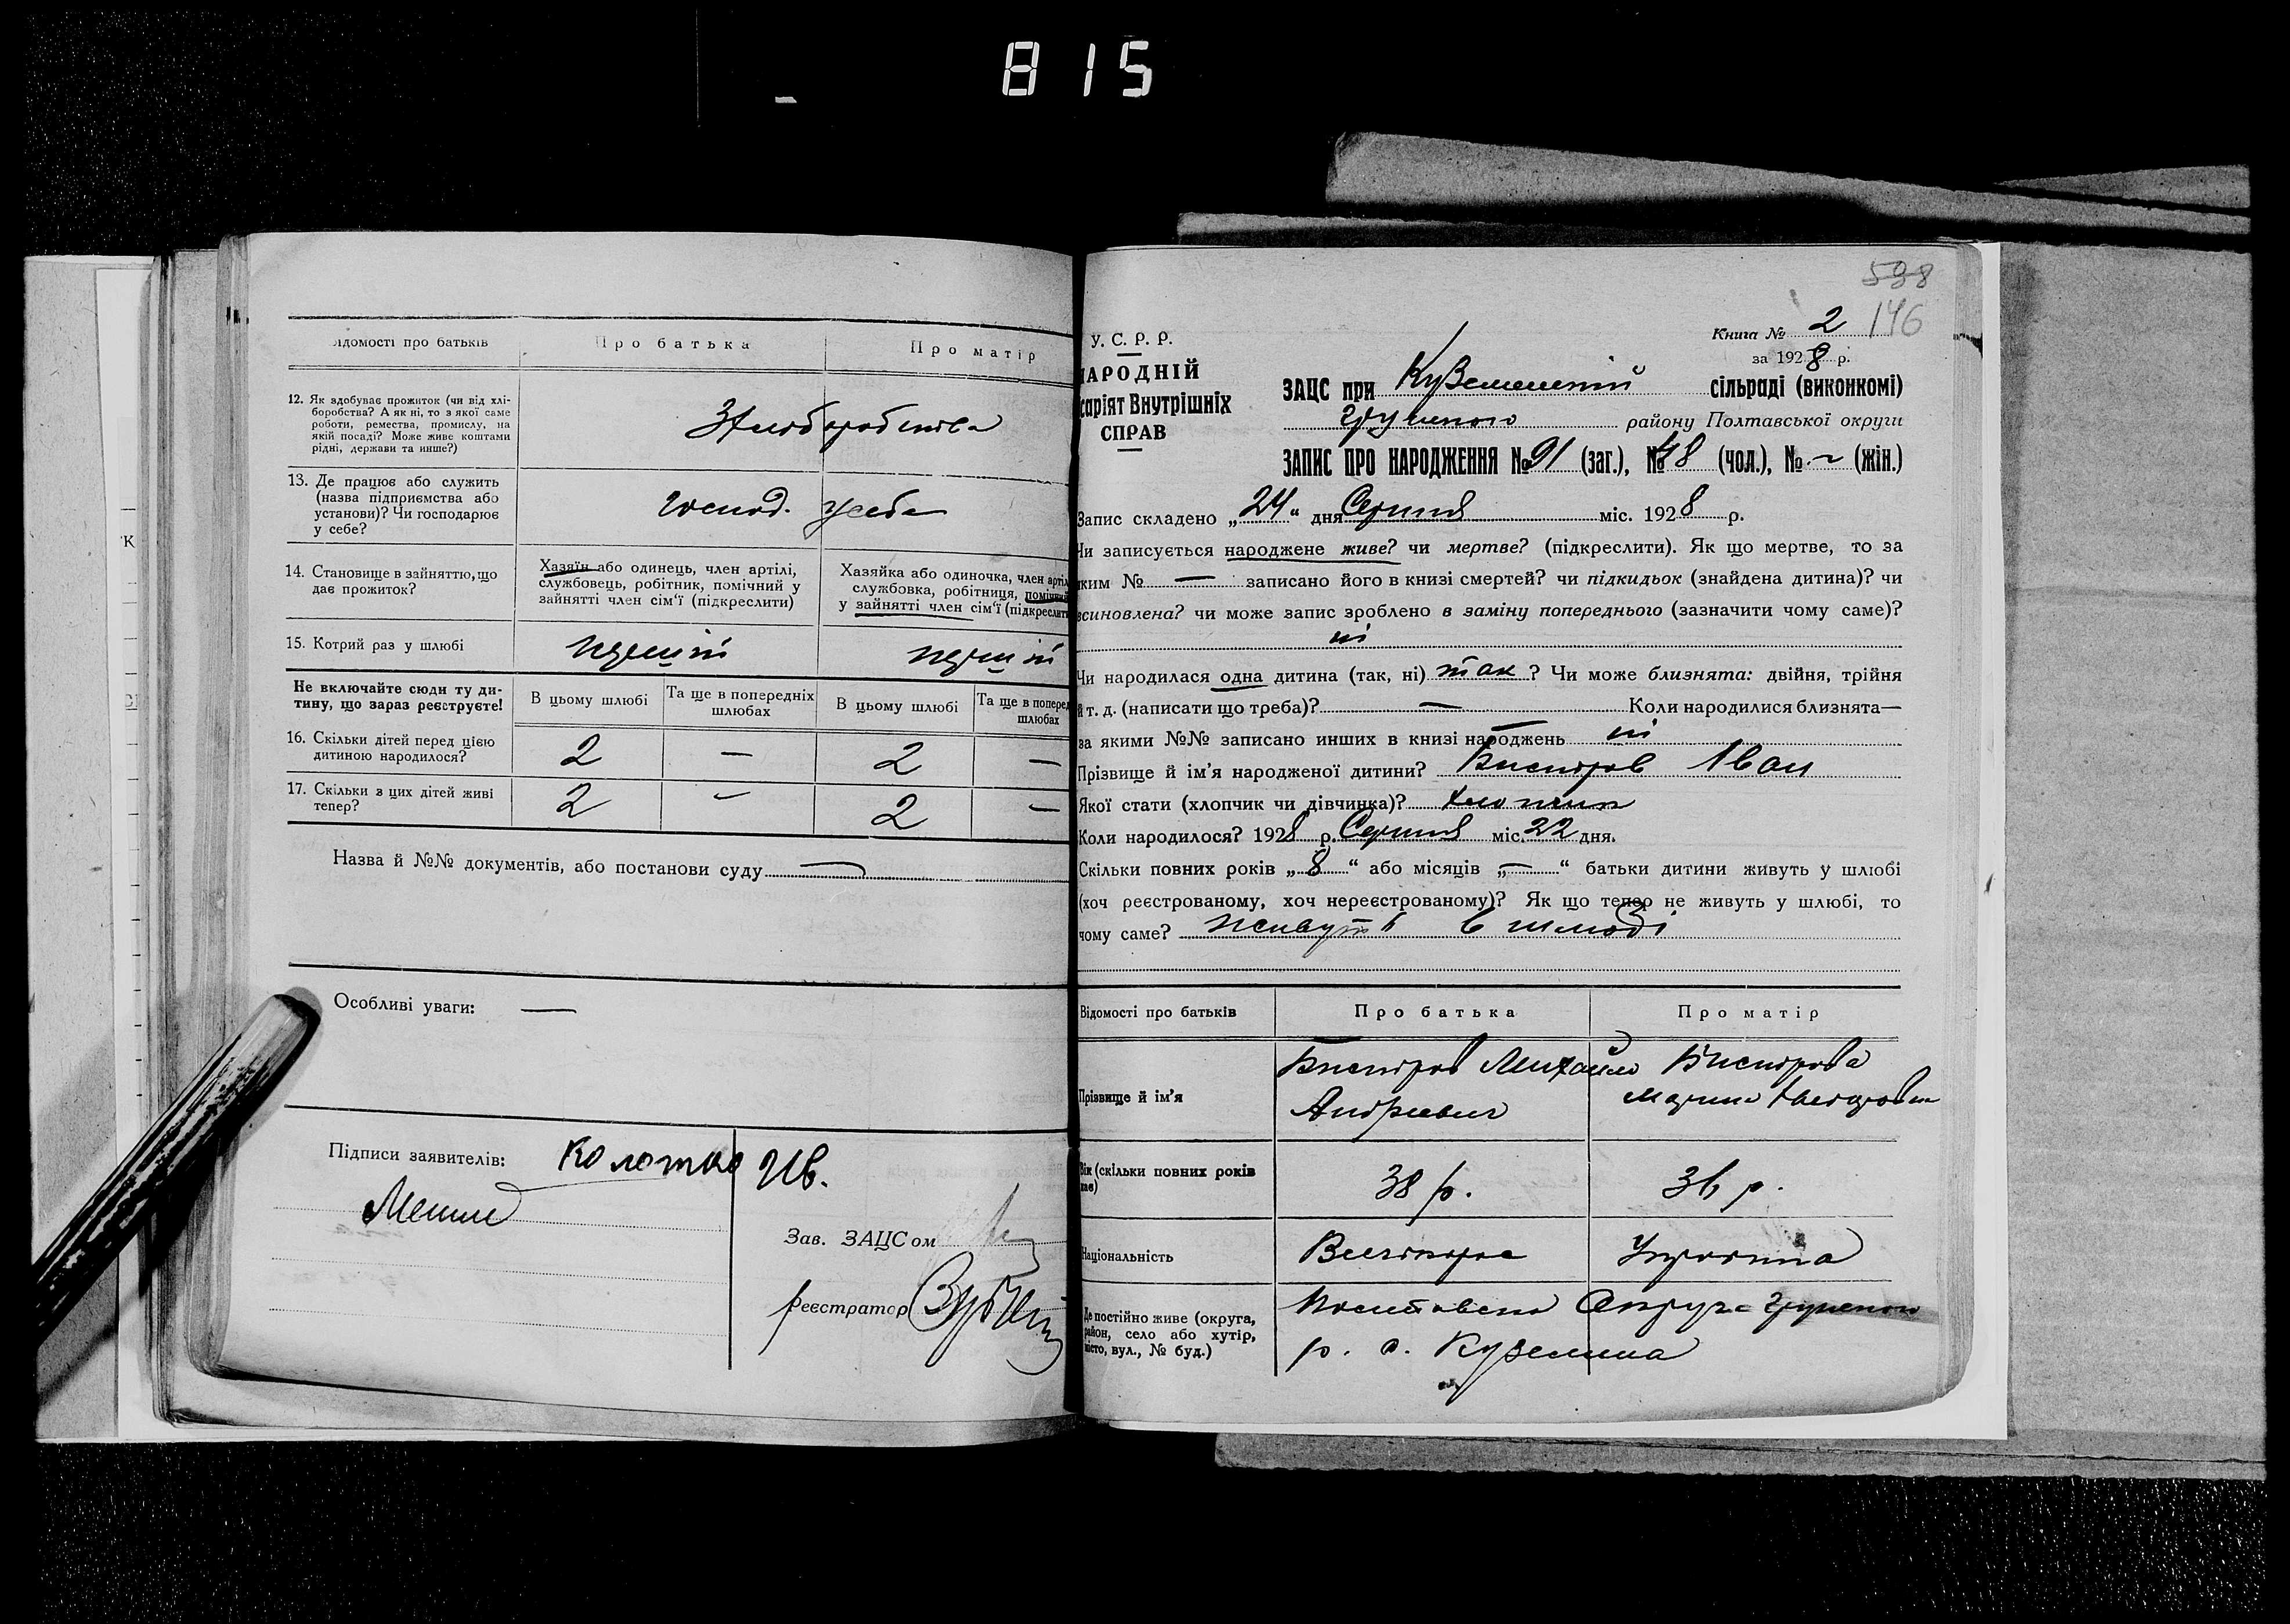 815
Відомості про батьків
Про батька
Про матір
12. Як здобуває прожиток (чи від хлі-
боробства? А як ні, то з якої саме
роботи, ремества, промислу, на
якій посаді? Може живе коштами
рідні, держави та инше?)
З хліборобства
13. Де працює або служить
(назва підприємства або
установи)? Чи господарює
у себе?
господ. у себе
14. Становище в зайняттю, що
дає прожиток?
Хазяїн або одинець, член артілі,
службовець, робітник, помічний у
зайнятті член сім'ї (підкреслити)
Хазяйка або одиночка, член артіл
службовка, робітниця, помічний
у зайнятті член сім'ї (підкреслити
15. Котрий раз у шлюбі
перший
перший
Не включайте сюди ту ди-
тину, що зараз реєструєте!
В цьому шлюбі
Та ще в попередніх
шлюбах
В цьому шлюбі
Та ще в поперед
шлюбах
16. Скільки дітей перед цією
дитиною народилося?
2 — 2 —
17. Скільки з цих дітей живі
тепер?
2 — 2 —
Назва й №№ документів, або постанови суду —
Особливі уваги: —
Підписи заявителів:
Зав. ЗАЦСом
реєстратор
598
146
У. С. Р. Р.
НАРОДНІЙ
саріят Внутрішніх
СПРАВ
Книга № 2
за 1928 р.
ЗАЦС при Куземенській сільраді (виконкомі)
Груньского району Полтавської округи
ЗАПИС ПРО НАРОДЖЕННЯ № 91 (заг.), № 48 (чол.), № — (жін.)
Запис складено „24“ дня Серпня міс. 1928 р.
Чи записується народжене живе? чи мертве? (підкреслити). Як що мертве, то за
яким № — записано його в книзі смертей? чи підкидьок (знайдена дитина)? чи
всиновлена? чи може запис зроблено в заміну попереднього (зазначити чому саме)?
ні
Чи народилася одна дитина (так, ні) так? Чи може близнята: двійня, трійня
й т. д. (написати що треба)? — Коли народилися близнята—
за якими №№ записано инших в книзі народжень ні
Прізвище й ім'я народженої дитини? Бистров Іван
Якої стати (хлопчик чи дівчинка)? хлопчик
Коли народилося? 1928 р. Серпня міс. 22 дня.
Скільки повних років „8“ або місяців „—“ батьки дитини живуть у шлюбі
(хоч реєстрованому, хоч нереєстрованому)? Як що тепер не живуть у шлюбі, то
чому саме? живуть в шлюбі
Відомості про батьків
Про батька
Про матір
Прізвище й ім'я
Бистров Михайло
Андрієвич
Бистрова
Вік (скільки повних років
має)
38 р.
36 р.
Національність
Українка
Де постійно живе (округа,
район, село або хутір,
місто, вул., № буд.)
Полтавська Округа
р. с. Куземина